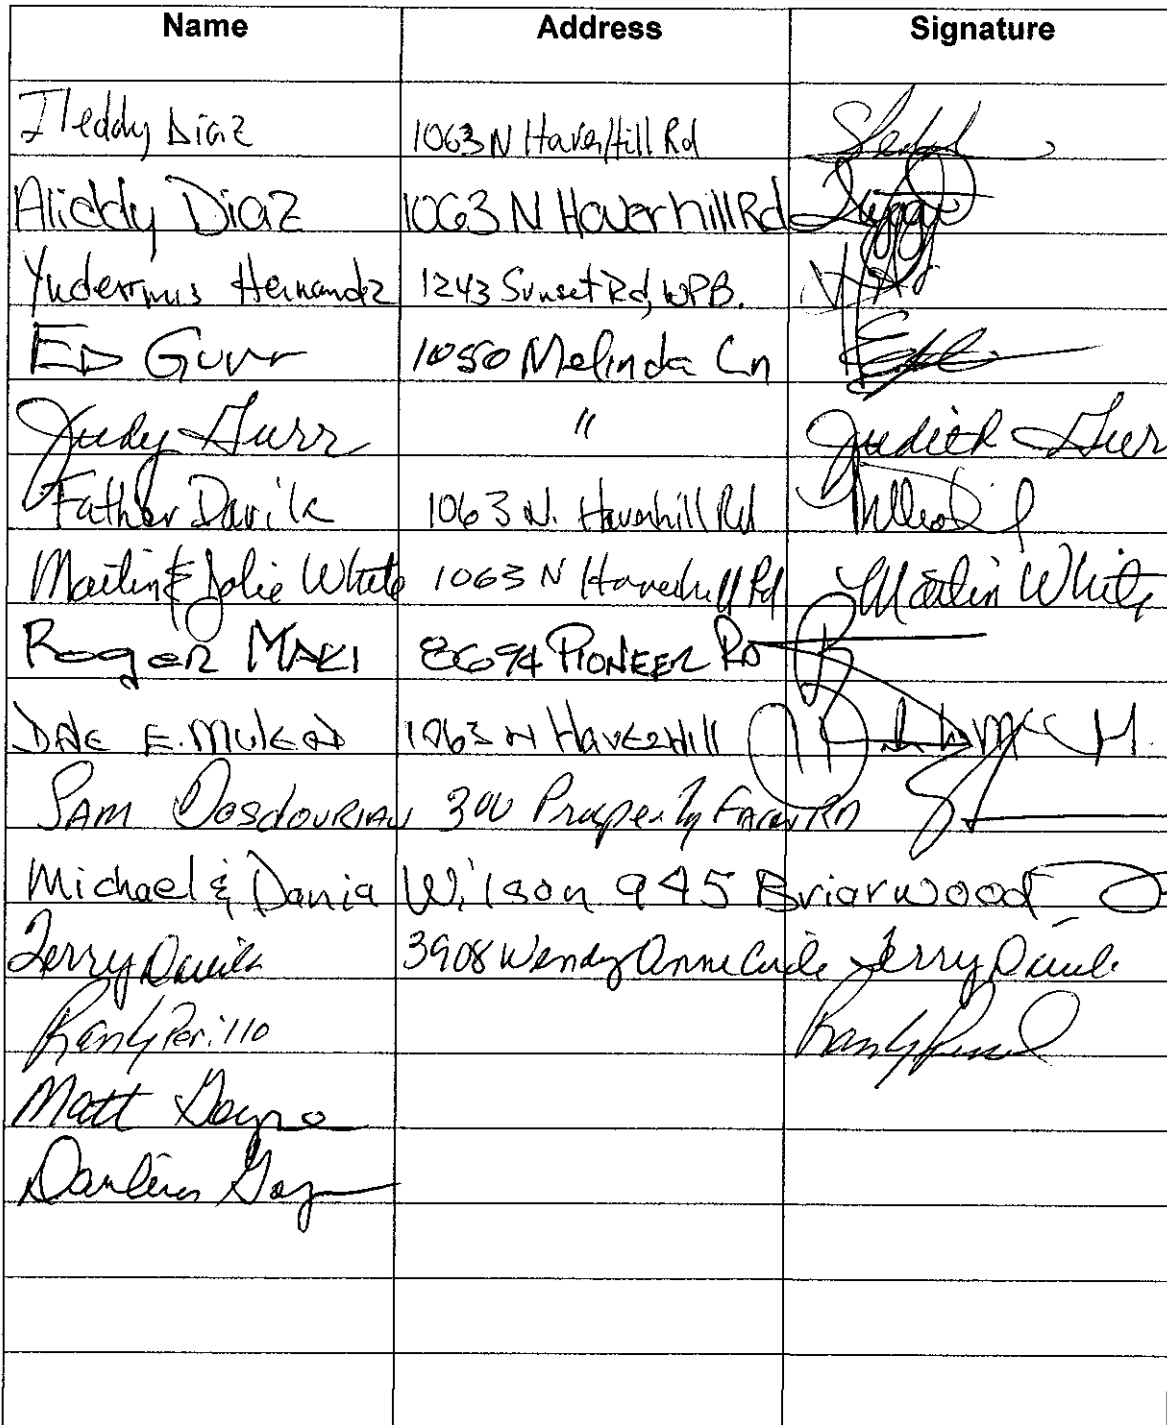 Name Address Signature
Ileddy Diaz 1063 N Haverhill Rd
Aliddy Diaz 1063 N Haverhill Rd
Hernandz 1243 Sunset Rd, WPB.
ED Gurr 1050 Melinda Ln
Judy Gurr " Judith Gurr
Father Davila 1063 N. Haverhill Rd
Martin & Jolie White 1063 N Haverhill Rd Martin White
Roger MAKI 8694 PIONEER RD
E. 1063 N HAVERHILL
SAM 300 Prosperity FARMS RD
Michael & Dania Wilson 945 Briarwood
Jerry Davila 3908 Wendy Anne Circle Jerry Davila
Randy Perillo Randy
Matt